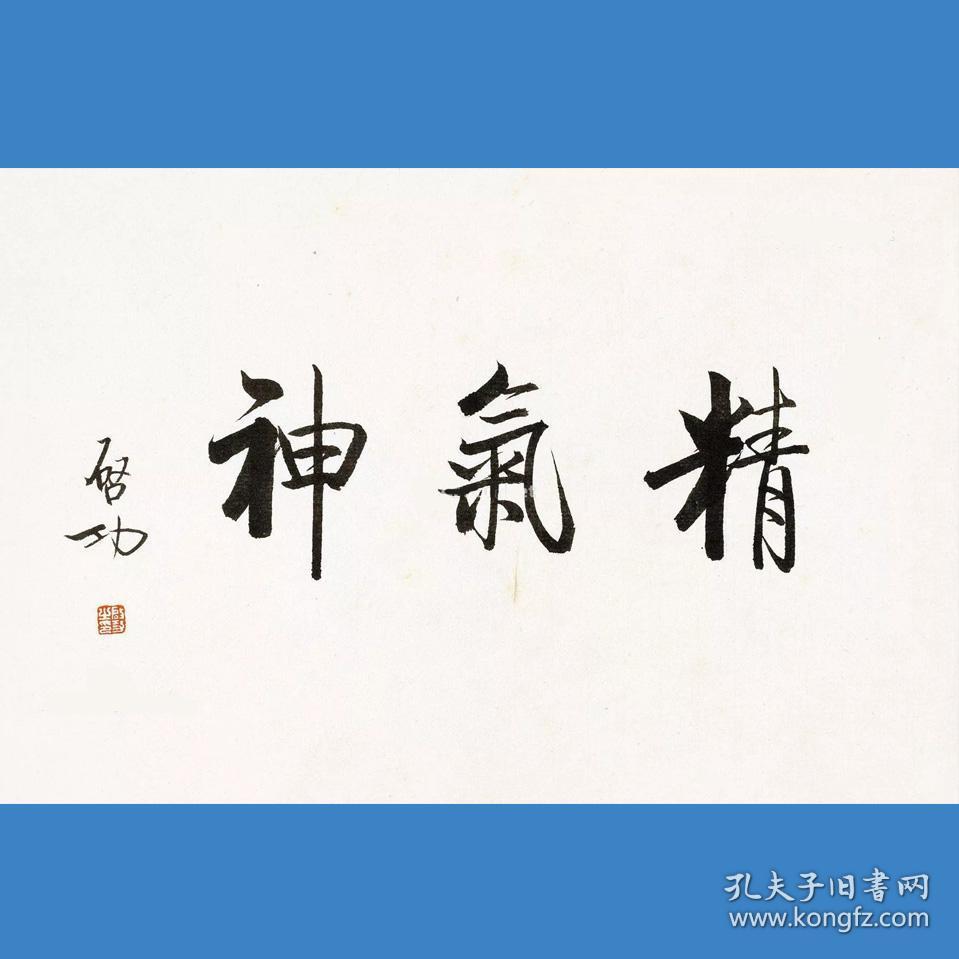 精氣神
啓功
孔夫子旧書网
www.kongfz.com